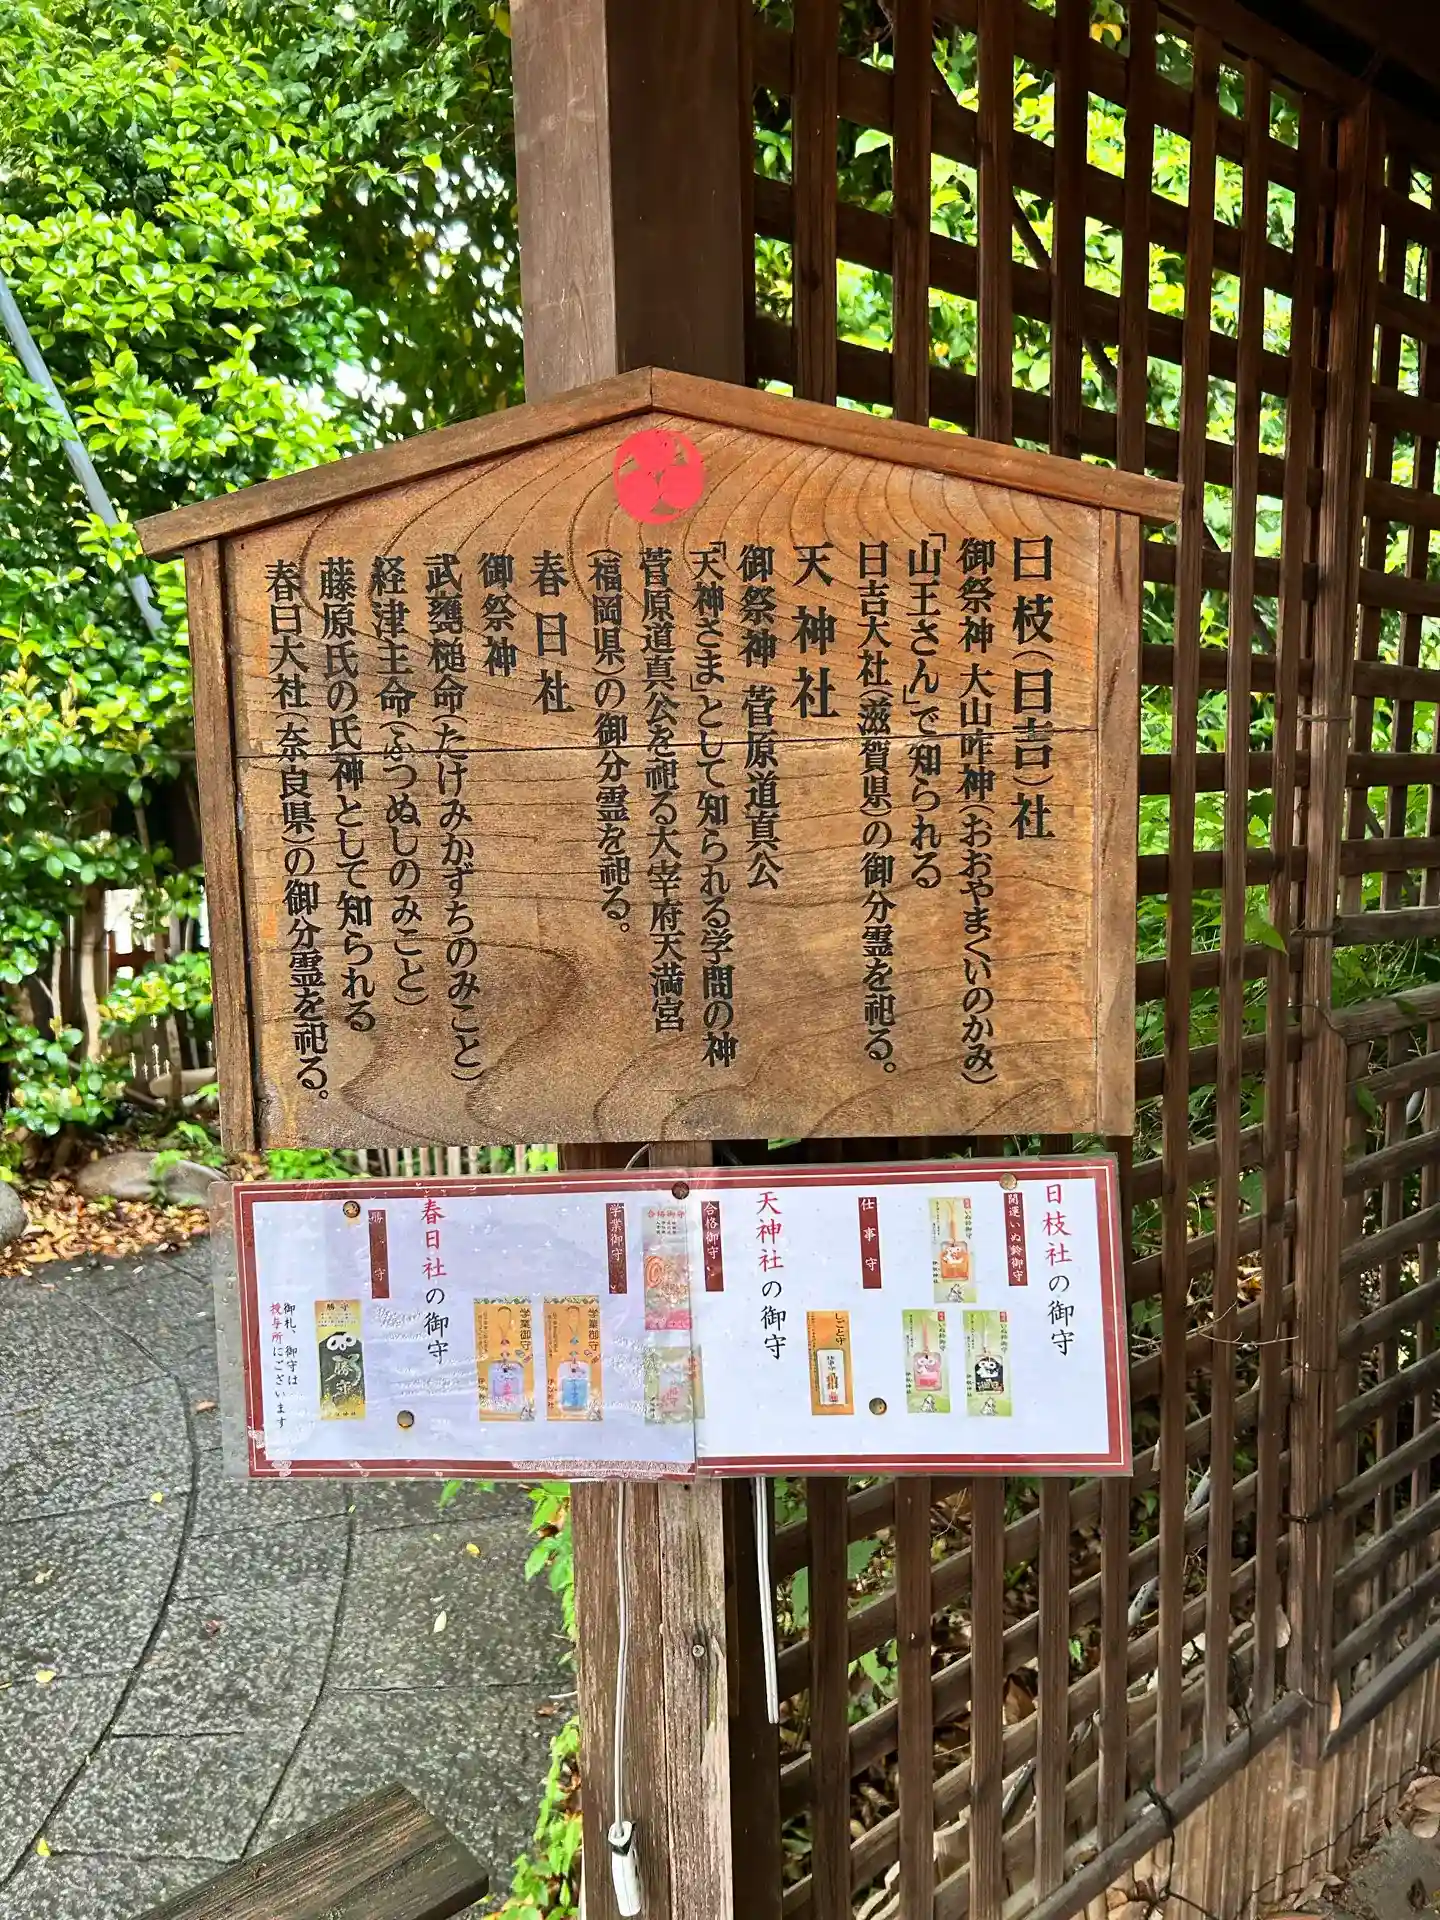 日枝(日吉)社
御祭神 大山咋神(おおやまくいのかみ)
「山王さん」で知られる
日吉大社(滋賀県)の御分霊を祀る。
天神社
御祭神 菅原道真公
「天神さま」として知られる学問の神
菅原道真公を祀る太宰府天満宮
(福岡県)の御分霊を祀る。
春日社
御祭神
武甕槌命(たけみかずちのみこと)
経津主命(ふつぬしのみこと)
藤原氏の氏神として知られる
春日大社(奈良県)の御分霊を祀る。
日枝社の御守
開運いぬ鈴御守
仕事守
しごと守
天神社の御守
合格御守
合格御守
学業御守
学業御守
学業御守
春日社の御守
勝守
勝守
御札、御守は
授与所にございます